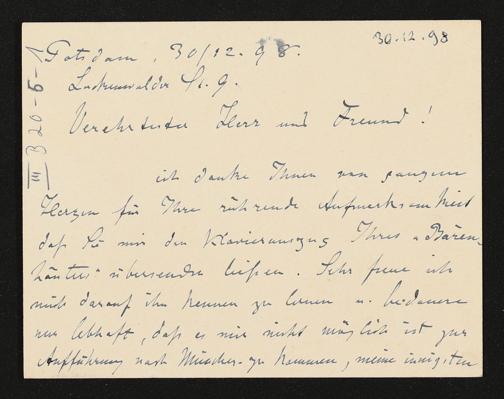 30.12.98
Potsdam, 30/12.98.
Luckenwalder St. 9.
Verehrtester Herr und Freund!
ich danke Ihnen von ganzem
Herzen für Ihre rührende Aufmerksamkeit
daß Sie mir den Klavierauszug Ihres „Bären-
häuters" übersenden ließen. Sehr freue ich
mich darauf ihn kennen zu lernen u. bedauere
nur lebhaft, daß es mir nicht möglich ist zur
Aufführung nach München zu kommen, meine innigsten
III B 20-5-1